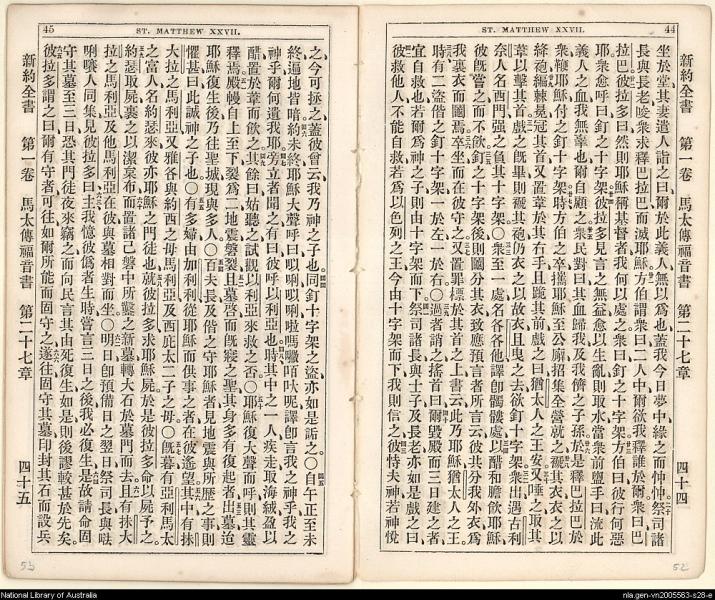 44
ST. MATTHEW XXVII.
新約全書 第一卷 馬太傳福音書 第二十七章 四十四
坐於堂其妻遣人詣之曰爾於此義人無以爲也蓋我今日夢中緣之而忡忡祭司諸
長與長老唆衆求釋巴拉巴而滅耶穌方伯謂衆曰二人中爾欲我釋誰於爾衆曰巴
拉巴彼拉多曰然則耶穌稱基督者我何以處之衆曰釘之十字架方伯曰彼行何惡
耶衆愈呼曰釘之十字架彼拉多見言之無益愈以生亂則取水當衆前盥手曰流此
義人之血我無辜也爾自顧之衆民對曰其血歸我及我儕之子孫於是釋巴拉巴於
衆鞭耶穌付之釘十字架時方伯之卒攜耶穌至公廨招集全營就之褫其衣衣之以
絳袍編棘冕冠其首又置葦於其右手且跽其前戲之曰猶太人之王安又唾之取其
葦以擊其首戲之旣畢則褫其袍仍衣之以故衣且曳之去欲釘十字架衆出遇古利
奈人名西門強之負其十字架○衆至一處名各各他譯卽髑髏處以醋和膽飲耶穌
彼旣嘗之而不飲釘之十字架後則鬮分其衣致應預言者所言云彼共分我外衣爲
我裏衣而鬮焉卒坐而在彼守之又置罪標於其首之上書云此乃耶穌猶太人之王
時有二盜偕之釘十字架一於左一於右○過者誚之搖首曰爾毀殿而三日建之者
宜自救也若爾爲神之子則由十字架而下祭司諸長與士子及長老亦如是戲之曰
彼救他人不能自救若爲以色列之王今由十字架而下我則信之彼恃夫神若神悅
52
45
ST. MATTHEW XXVII.
之今可拯之蓋彼曾云我乃神之子也同釘十字架之盜亦如是詬之○自午正至未
終遍地皆暗約未終耶穌大聲呼曰以唎以唎啦嗎譯卽言我之神乎我之
神乎爾何遺我耶旁立者聞之有曰彼呼以利亞也時其中之一人疾走取海絨盈以
醋置於葦而飲之其餘曰姑聽之試觀以利亞來救之否○耶穌復大聲而呼則其靈
釋焉殿幔自上至下裂爲二地震磐裂且墓啓而旣寢之聖其身多有復起者出墓迨
耶穌復生後乃往聖城現與多人○百夫長及偕之守耶穌者見地震與所歷之事則
懼甚曰此誠神之子也○有多婦由加利利從耶穌而供事之者在彼遙望其中有抹
大拉之馬利亞又雅各與約西之母馬利亞及西庇太二子之母○旣暮有亞利馬太
之富人名約瑟來彼亦耶穌之門徒也就彼拉多求耶穌屍於是彼拉多命以屍予之
約瑟取屍裹之以潔枲布而置諸己磐中所鑿之新墓轉大石於墓門而去且有抹大
拉之馬利亞及他馬利亞在彼與墓相對而坐○明日卽預備日之翌日祭司長與𠵽
唎㘔人同集見彼拉多曰主我憶彼僞者生時嘗言三日之後我必復生是故請命固
守其墓至三日恐其門徒夜來竊之而向民言其由死復生如是則後謬較甚於先矣
彼拉多謂之曰爾有守者可往如爾所能而固守之遂往固守其墓印封其石而設兵
新約全書 第一卷 馬太傳福音書 第二十七章 四十五
53
National Library of Australia
nla.gen-vn2005563-s28-e